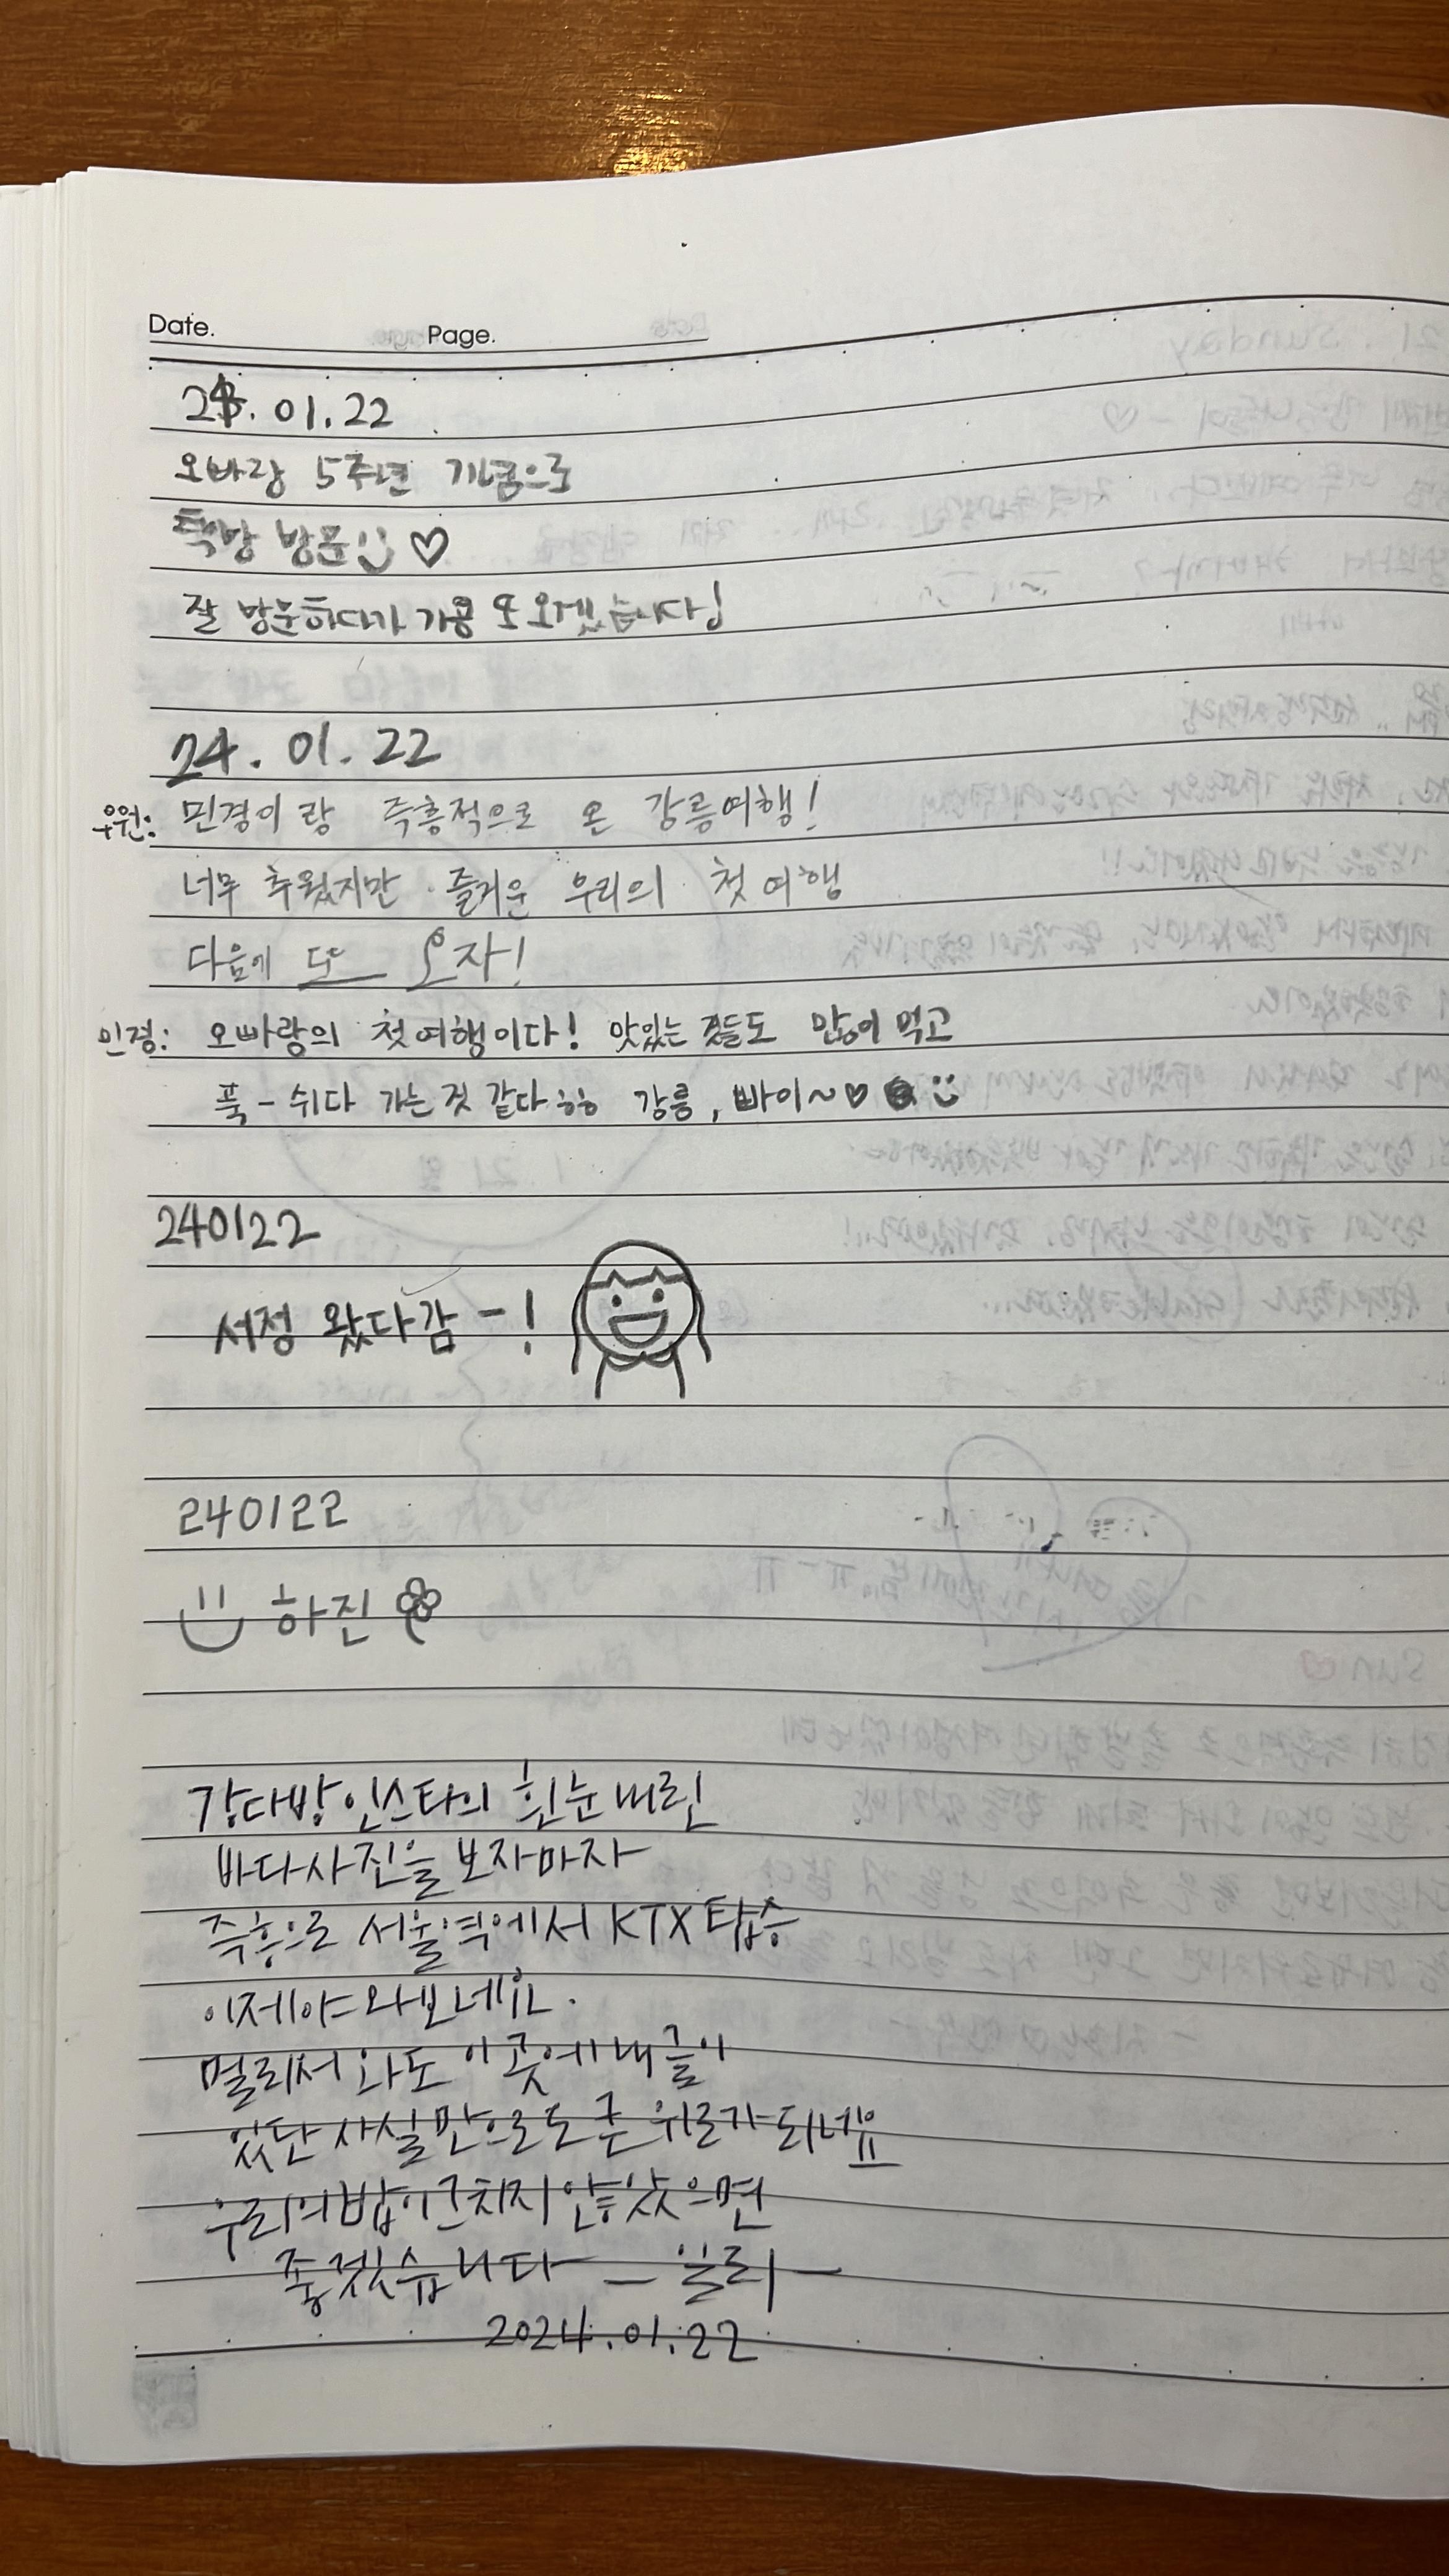 Date. Page.
24.01.22
오빠랑 5주년 기념으로
책방 방문 ♡
잘 방문하다가 가용 또 오겠습니다!
24.01.22
우원: 민경이랑 즉흥적으로 온 강릉여행!
너무 추웠지만 즐거운 우리의 첫 여행
다음에 또 오자!
민경: 오빠랑의 첫여행이다! 맛있는 것들도 많이 먹고
푹-쉬다 가는 것 같다ㅎㅎ 강릉, 빠이~♡
240122
서정 왔다감-!
240122
하진
강다방 인스타의 흰눈내린
바다사진을 보자마자
즉흥으로 서울역에서 KTX탑승
이제야 와보네요.
멀리서 와도 이곳에 내 글이
있단 사실만으로도 큰 위로가 되네요
우리의 밤이 그치지 않았으면
좋겠습니다 - 일리 -
2024.01.22